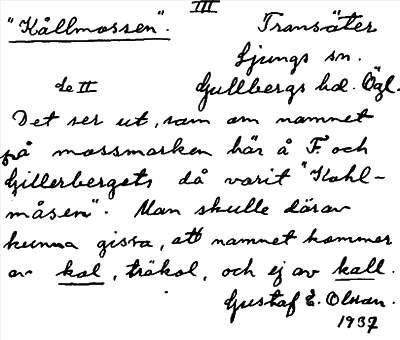 III
"Kållmossen". Transäter
Ljungs sn.
se II Gullbergs hd. Ögl.
Det ser ut, som om namnet
på mossmarken här å F. och
Gillerbergets då varit "Kohl-
måsen". Man skulle därav
kunna gissa, att namnet kommer
av kol, träkol, och ej av kall.
Gustaf E. Olsson.
1937